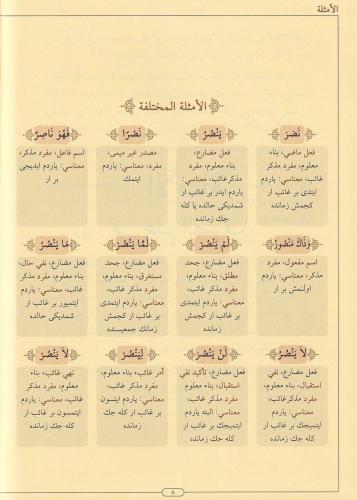 الأمثلة
الأمثلة المختلفة
نَصَرَ
فعل ماضي، بناء
معلوم، مفرد مذكر
غائب، معناسي: ياردم
ايتدى بر غائب ار
كجمش زمانده
يَنْصُرُ
فعل مضارع،
بناء معلوم، مفرد
مذكر غائب، معناسي:
ياردم ايدر بر غائب ار
شمديكي حالده يا كله
جك زمانده
نَصْرًا
مصدر غير ميمى،
مفرد، معناسي: ياردم
ايتمك
فَهُوَ نَاصِرٌ
اسم فاعل، مفرد مذكر،
معناسي: ياردم ايديجى
بر ار
وَذَاكَ مَنْصُورٌ
اسم مفعول، مفرد
مذكر، معناسي: ياردم
اولنمش بر ار
لَمْ يَنْصُرْ
فعل مضارع، جحد
مطلق، بناء معلوم،
مفرد مذكر غائب،
معناسي: ياردم ايتمدى
بر غائب ار كجمش
زمانده
لَمَّا يَنْصُرْ
فعل مضارع، جحد
مستغرق، بناء معلوم،
مفرد مذكر غائب،
معناسي: ياردم ايتمدى
بر غائب ار كجمش
زمانك جميعسنده
مَا يَنْصُرُ
فعل مضارع، نفي حال،
بناء معلوم، مفرد
مذكر غائب،
معناسي: ياردم
ايتميور بر غائب ار
شمديكي حالده
لاَ يَنْصُرُ
فعل مضارع، نفي
استقبال، بناء معلوم،
مفرد مذكر غائب،
معناسي: ياردم
ايتميجك بر غائب ار
كله جك زمانده
لَنْ يَنْصُرَ
فعل مضارع، تأكيد نفي
استقبال، بناء معلوم
مفرد مذكر غائب،
معناسي: البته ياردم
ايتميجك بر غائب ار
كله جك زمانده
لِيَنْصُرْ
أمر غائب، بناء معلوم،
مفرد مذكر غائب،
معناسي: ياردم ايتسون
بر غائب ار كله جك
زمانده
لاَ يَنْصُرْ
نهي غائب، بناء
معلوم، مفرد مذكر
غائب، معناسي: ياردم
ايتمسون بر غائب ار
كله جك زمانده
٨